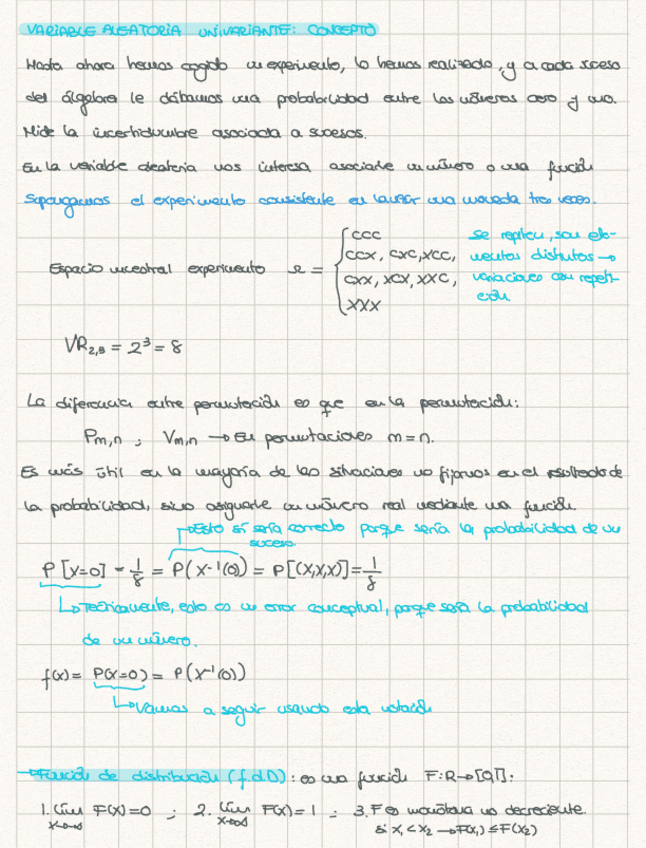 VARIABLE ALEATORIA UNIVARIANTE: CONCEPTO
Hasta ahora hemos cogido un experimento, lo hemos realizado, y a cada suceso
del álgebra le dábamos una probabilidad entre los números cero y uno.
Mide la incertidumbre asociada a sucesos.
En la variable aleatoria nos interesa asociarle un número o una función
Supongamos el experimento consistente en lanzar una moneda tres veces.
Espacio muestral experimento Ω = { CCC
CCX, CXC, XCC,
CXX, XCX, XXC,
XXX
Se repiten, son ele-
mentos distintos →
variaciones con repeti-
ción
VR₂,₃ = 2³ = 8
La diferencia entre permutación es que en la permutación:
Pm,n ; Vm,n → En permutaciones m = n.
Es más útil en la mayoría de las situaciones no fijarnos en el resultado de
la probabilidad, sino asignarle un número real mediante una función.
↱ Esto sí sería correcto porque sería la probabilidad de un
suceso
P[X=0] = 1/8 = P(X⁻¹(0)) = P[(X,X,X)] = 1/8
↳ Técnicamente, esto es un error conceptual, porque sería la probabilidad
de un número.
f(x) = P(X=0) = P(X⁻¹(0))
↳ Vamos a seguir usando esta notación
→ Función de distribución (f.d.D) : es una función F: R → [0,1]:
1. lím F(x) = 0 ; 2. lím F(x) = 1 ; 3. F es monótona no decreciente.
x→-∞ x→∞ si x₁ < x₂ → F(x₁) ≤ F(x₂)